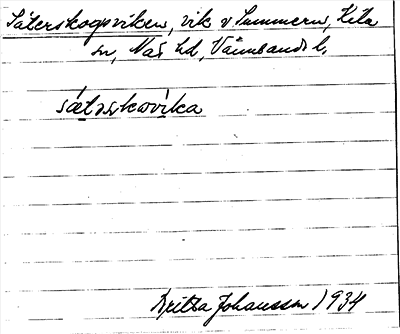 Säterskogsviken, vik v Summeren, Kila
sn, Näs hd, Värmlands l.
sǽtəskovika
Britta Johansson 1934